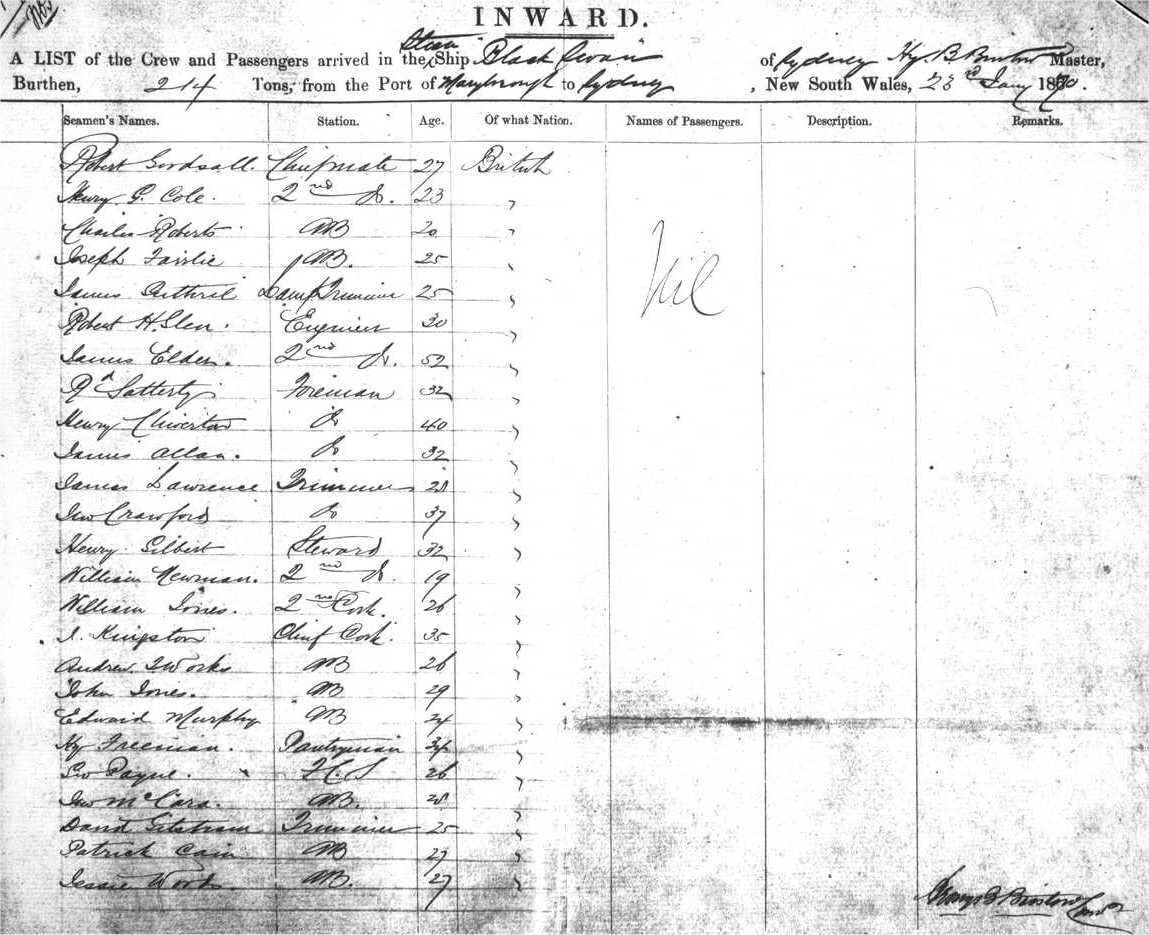 INWARD.
A LIST of the Crew and Passengers arrived in the Steam Ship Black Swan of Sydney Hy. B. Bristow Master,
Burthen, 214 Tons, from the Port of Maryborough to Sydney, New South Wales, 23rd Jany 1870.
Seamen's Names. Station. Age. Of what Nation. Names of Passengers. Description. Remarks.
Robert Goodsall. Chief mate 27 British
Henry G. Cole. 2nd Do. 23 "
Charles Roberts AB 20 "
Joseph Fairlie AB. 25 "
James Lamp Trimmer 25 "
Robert H. Glen. Engineer 30 "
James Elder. 2nd Do. 52 "
Rd Foreman 32 "
Henry Chiverton Do 40 "
James Allan. Do 32 "
James Lawrence Trimmer 28 "
Jno Crawford Do 37 "
Henry Gilbert Steward 32 "
William Newman. 2nd Do. 19 "
William Jones. 2nd Cook. 26 "
J. Kingston Chief Cook. 35 "
Andrew AB 26 "
John Jones. AB 29 "
Edward Murphy AB 24 "
Hy Freeman. Pantryman 34 "
Geo Payne. 26 "
Jno McCara. AB. 28 "
David Trimmer 25 "
Patrick Cain AB 27 "
Woods. AB. 27 "
Nil
Bristow